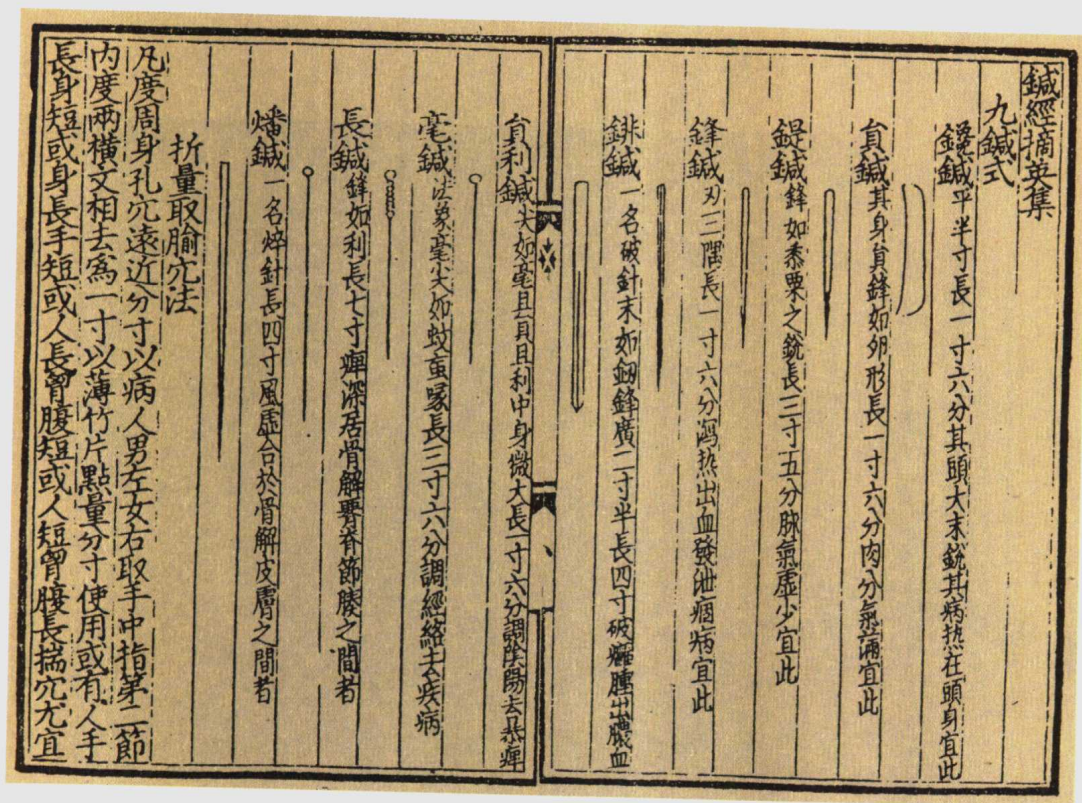 鍼經摘英集
九鍼式
鑱鍼平半寸長一寸六分其頭大末銳其病热在頭身宜此
貟鍼其身貟鋒如卵形長一寸六分肉分氣滿宜此
鍉鍼鋒如黍粟之銳長三寸五分脉氣虛少宜此
鋒鍼刃三隅長一寸六分瀉热出血發泄痼病宜此
鈹鍼一名破針末如劒鋒廣二寸半長四寸破癰腫出膿血
貟利鍼尖如毫且貟且利中身微大長一寸六分調陰陽去暴痺
毫鍼法象毫尖如蚊䖟喙長三寸六分調經絡去疾病
長鍼鋒如利長七寸痺深居骨解腰脊節腠之間者
燔鍼一名焠針長四寸風虛合於骨解皮膚之間者
折量取腧穴法
凡度周身孔穴遠近分寸以病人男左女右取手中指第二節
內度兩橫文相去爲一寸以薄竹片點量分寸使用或有人手
長身短或身長手短或人長胷腹短或人短胷腹長揣穴尤宜